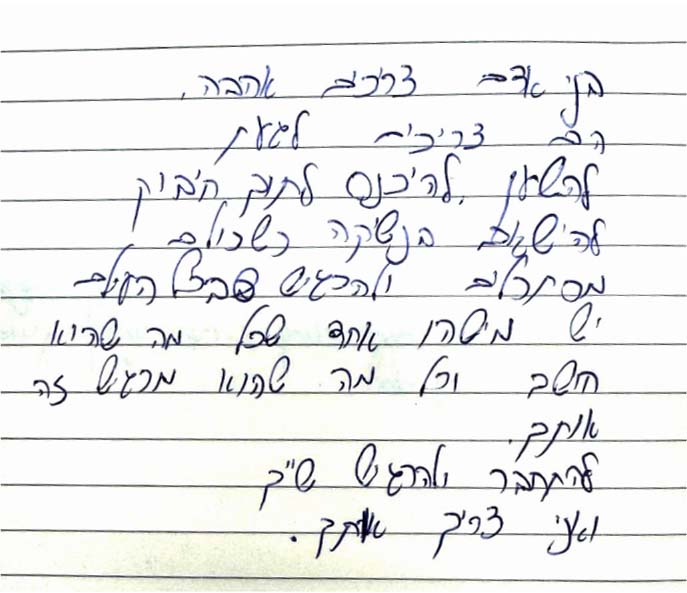 בני אדם צריכים אהבה.
הם צריכים לגעת
להשען, להיכנס לתוך חיבוק
להישאם בנשיקה כשכולם
מסתכלים ולהרגיש שבכל העולם
יש מישהו אחד שכל מה שהוא
חושב וכל מה שהוא מרגיש זה
אותך.
להתחבר ולהרגיש ש"ך
ואני צריך אותך.